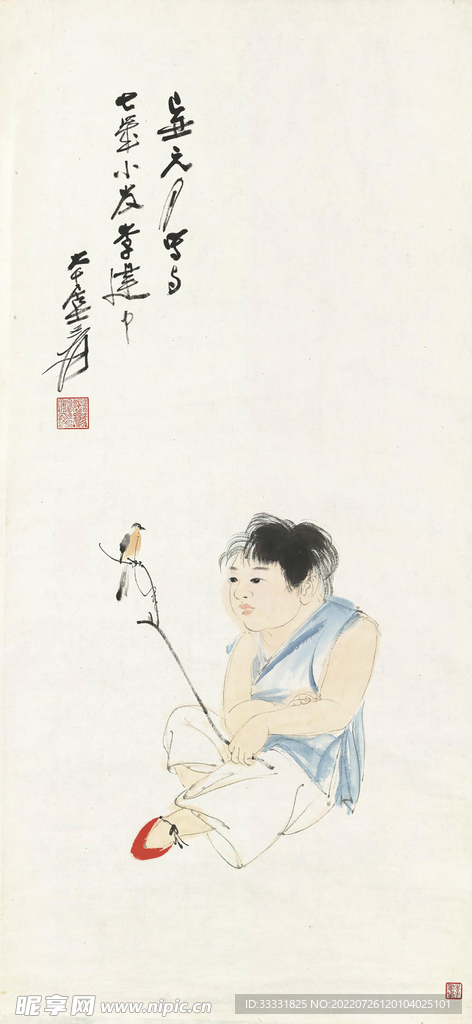 元月写与
七岁小友李建中
大千居士爰
昵享网 www.nipic.cn
ID:33331825 NO:20220726120104025101